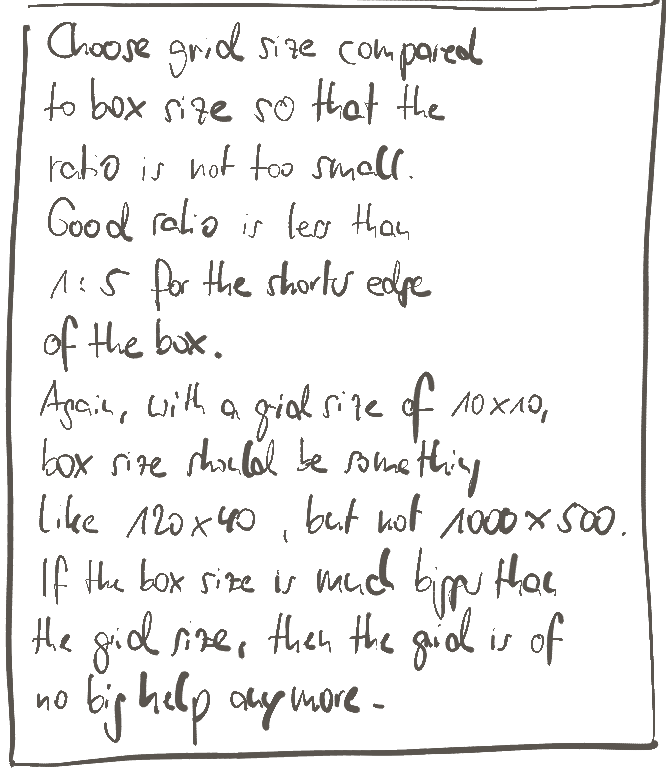 Choose grid size compared
to box size so that the
ratio is not too small.
Good ratio is less than
1:5 for the shorter edge
of the box.
Again, with a grid size of 10x10,
box size should be something
like 120x40, but not 1000x500.
If the box size is much bigger than
the grid size, then the grid is of
no big help anymore.